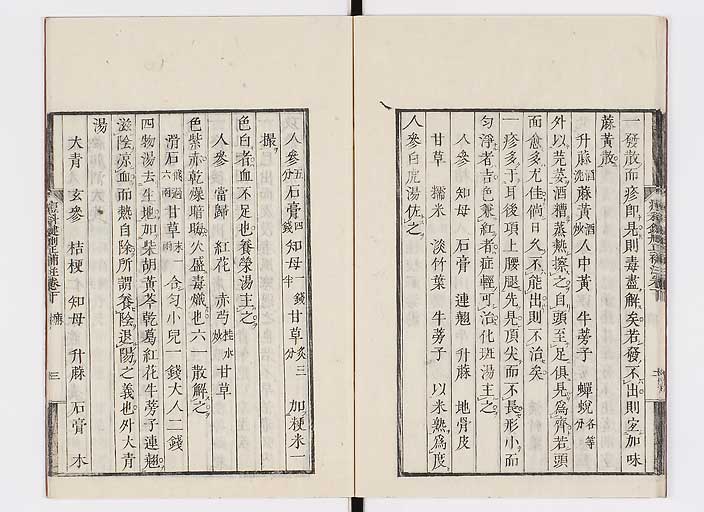 一發散而疹卽見則毒盡解矣若發不出則宜加味
蔴黄散
升蔴酒洗 蔴黄酒炒 人中黄 牛蒡子 蟬蛻各等分
外以芫荽酒糟蒸熱擦之自頭至足俱見爲齊若頭
面愈多尤佳倘日久不能出則不治矣
一疹多于耳後項上腰腿先見頂尖而不長形小而
匀淨者吉色兼紅者症輕可治化斑湯主之
人參 知母 石膏 連翹 升蔴 地骨皮
甘草 糯米 淡竹葉 牛蒡子 以米熟爲度
人參白虎湯佐之
人參五分 石膏四錢 知母一錢半 甘草炙三分 加粳米一
撮
色白者血不足也養榮湯主之
人參 當歸 紅花 赤芍桂水炒 甘草
色紫赤乾燥暗晦火盛毒熾也六一散解之
滑石飛過六兩 甘草末一兩 合匀小兒一錢大人二錢
四物湯去生地加柴胡黄芩乾葛紅花牛蒡子連翹
滋陰涼血而熱自除所謂養陰退陽之義也外大青
湯
大青 玄參 桔梗 知母 升蔴 石膏 木